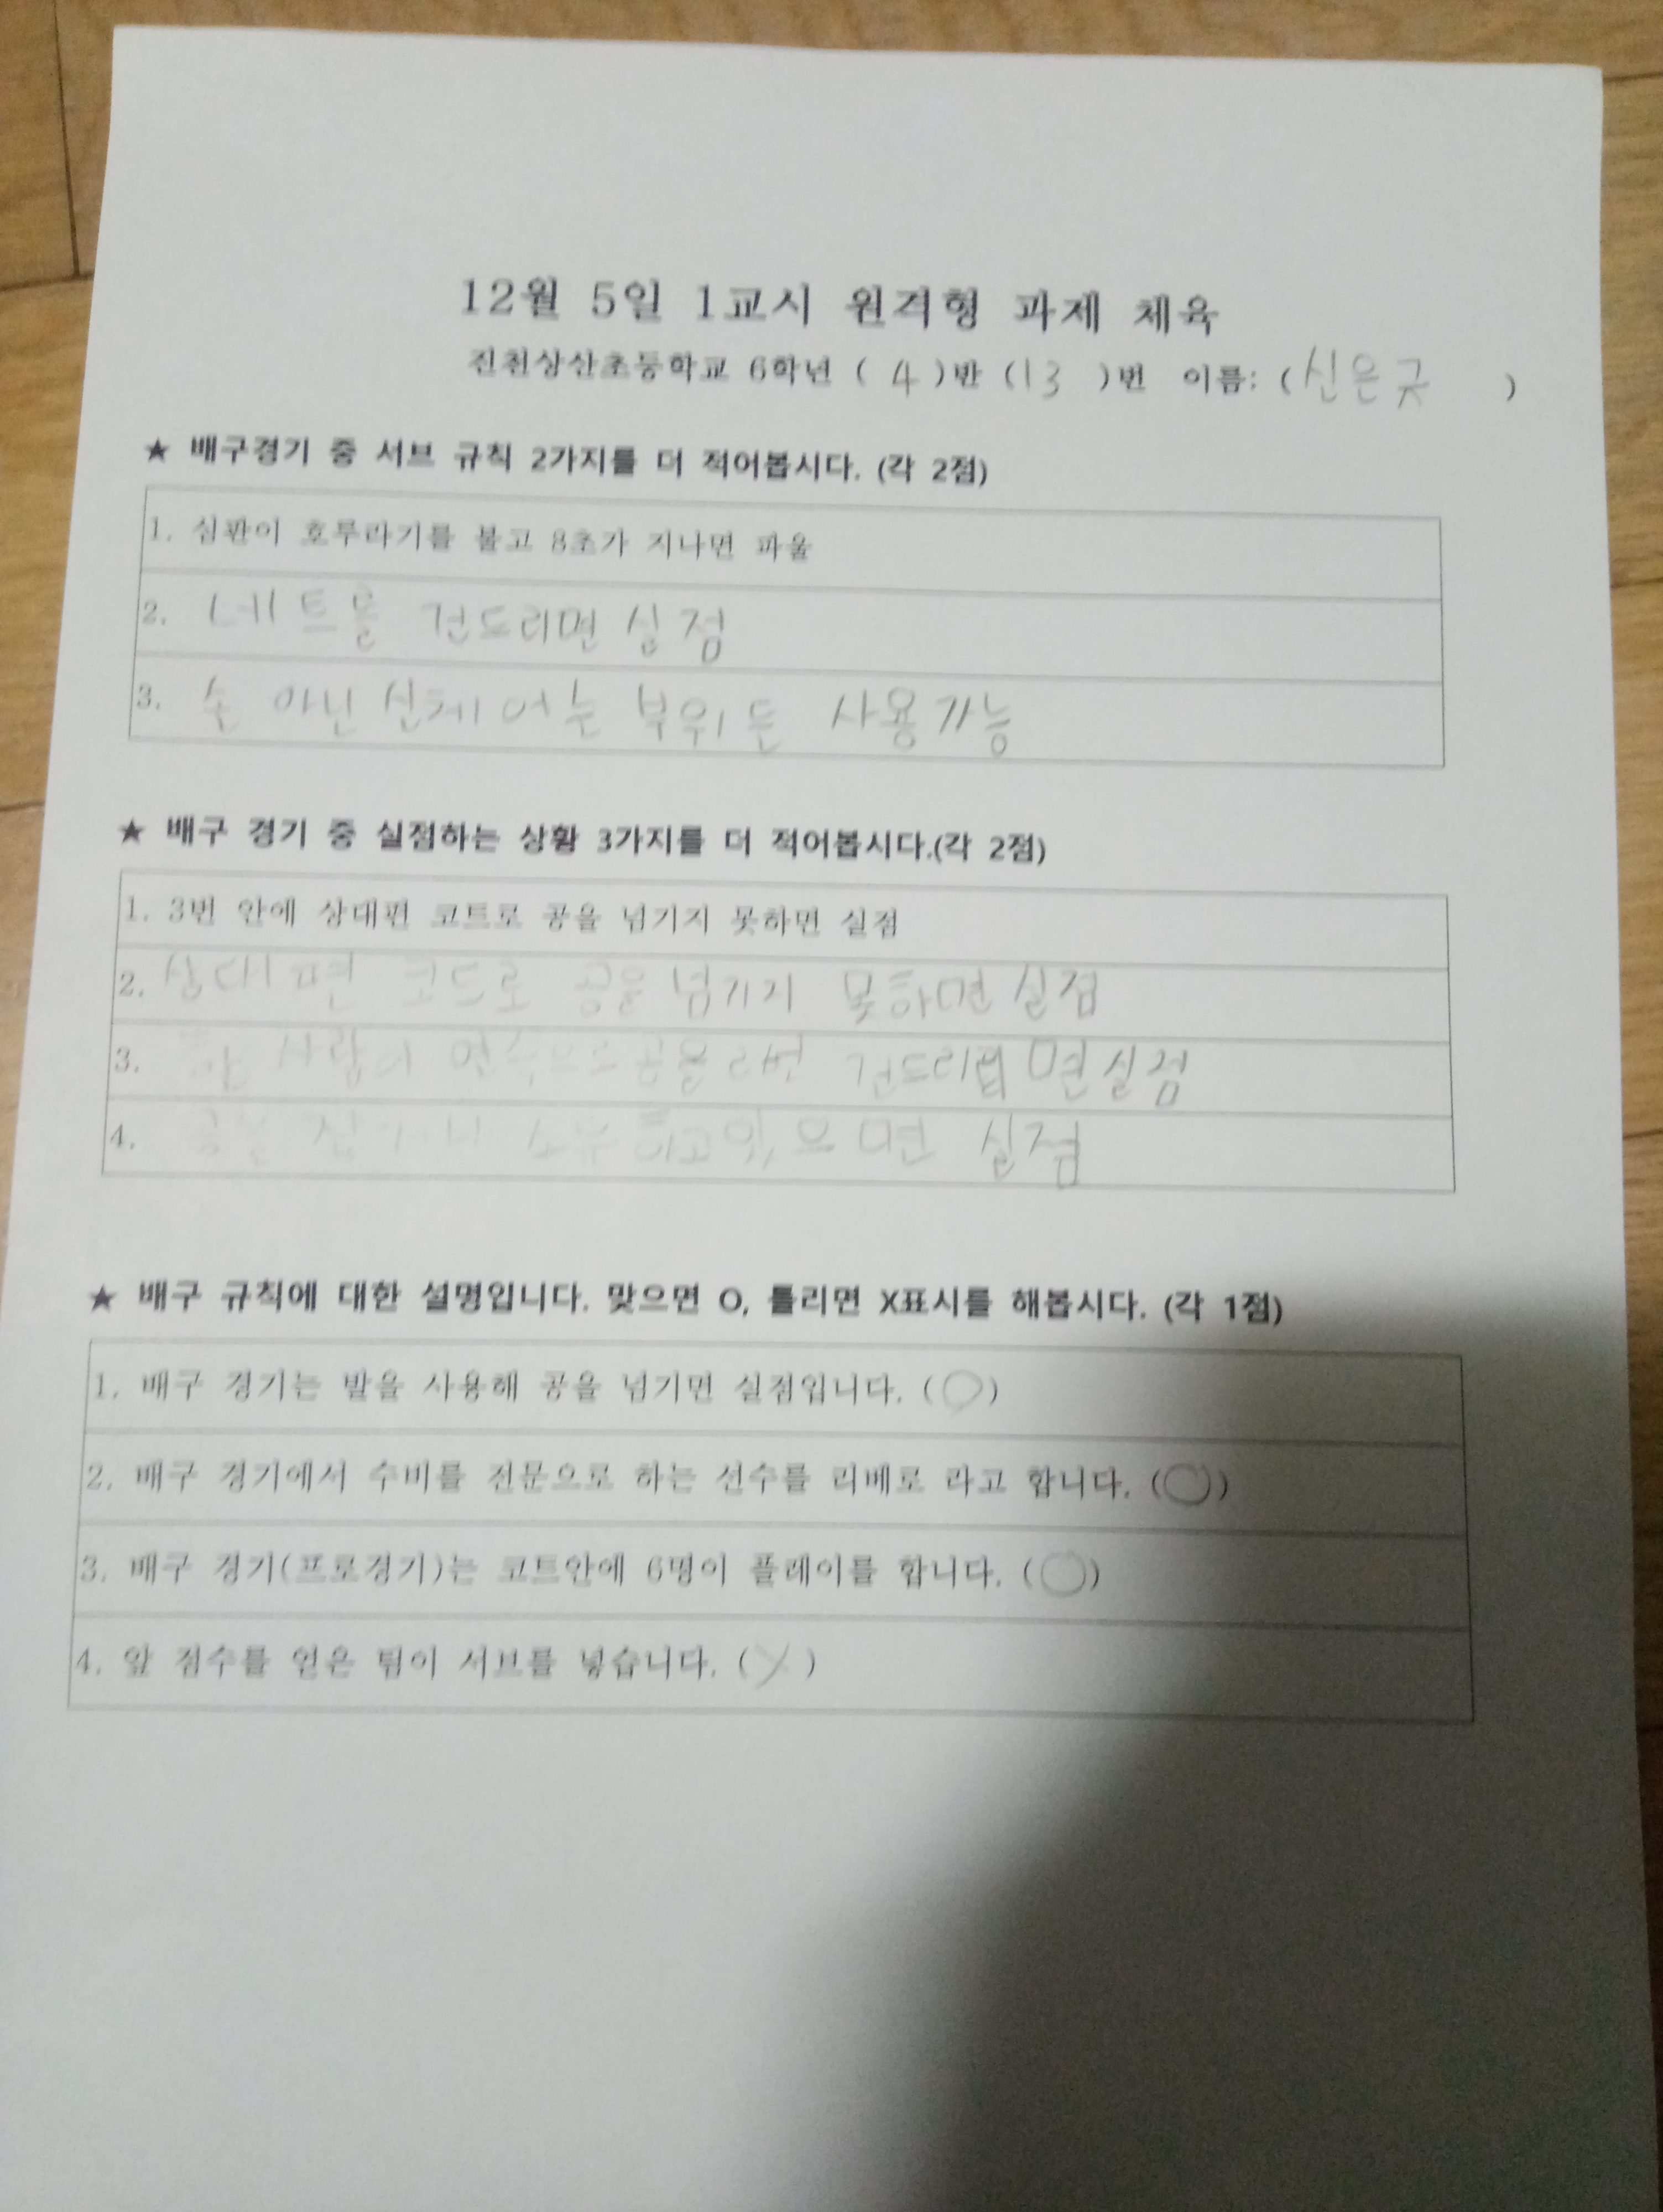 12월 5일 1교시 원격형 과제 체육
진천상산초등학교 6학년 ( 4 )반 (13 )번 이름: (신은규 )
★ 배구경기 중 서브 규칙 2가지를 더 적어봅시다. (각 2점)
1. 심판이 호루라기를 불고 8초가 지나면 파울
2. 네트를 건드리면 실점
3. 손 아닌 신체 어느 부위든 사용가능
★ 배구 경기 중 실점하는 상황 3가지를 더 적어봅시다.(각 2점)
1. 3번 안에 상대편 코트로 공을 넘기지 못하면 실점
2. 상대편 코드로 공을 넘기지 못하면 실점
3. 한 사람이 연속으로 공을 2번 건드리면 실점
4. 공을 잡거나 소유하고 있으면 실점
★ 배구 규칙에 대한 설명입니다. 맞으면 O, 틀리면 X표시를 해봅시다. (각 1점)
1. 배구 경기는 발을 사용해 공을 넘기면 실점입니다. (O)
2. 배구 경기에서 수비를 전문으로 하는 선수를 리베로 라고 합니다. (O)
3. 배구 경기(프로경기)는 코트안에 6명이 플레이를 합니다. (O)
4. 앞 점수를 얻은 팀이 서브를 넣습니다. (X)